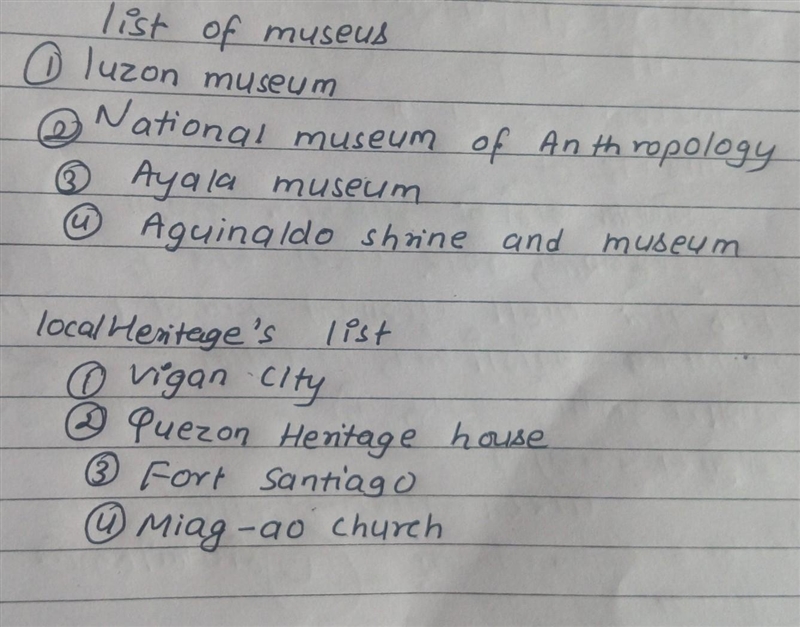 list of museus
① luzon museum
② National museum of Anthropology
③ Ayala museum
④ Aguinaldo shrine and museum
localHeritage's list
① Vigan City
② Quezon Heritage house
③ Fort Santiago
④ Miag-ao church